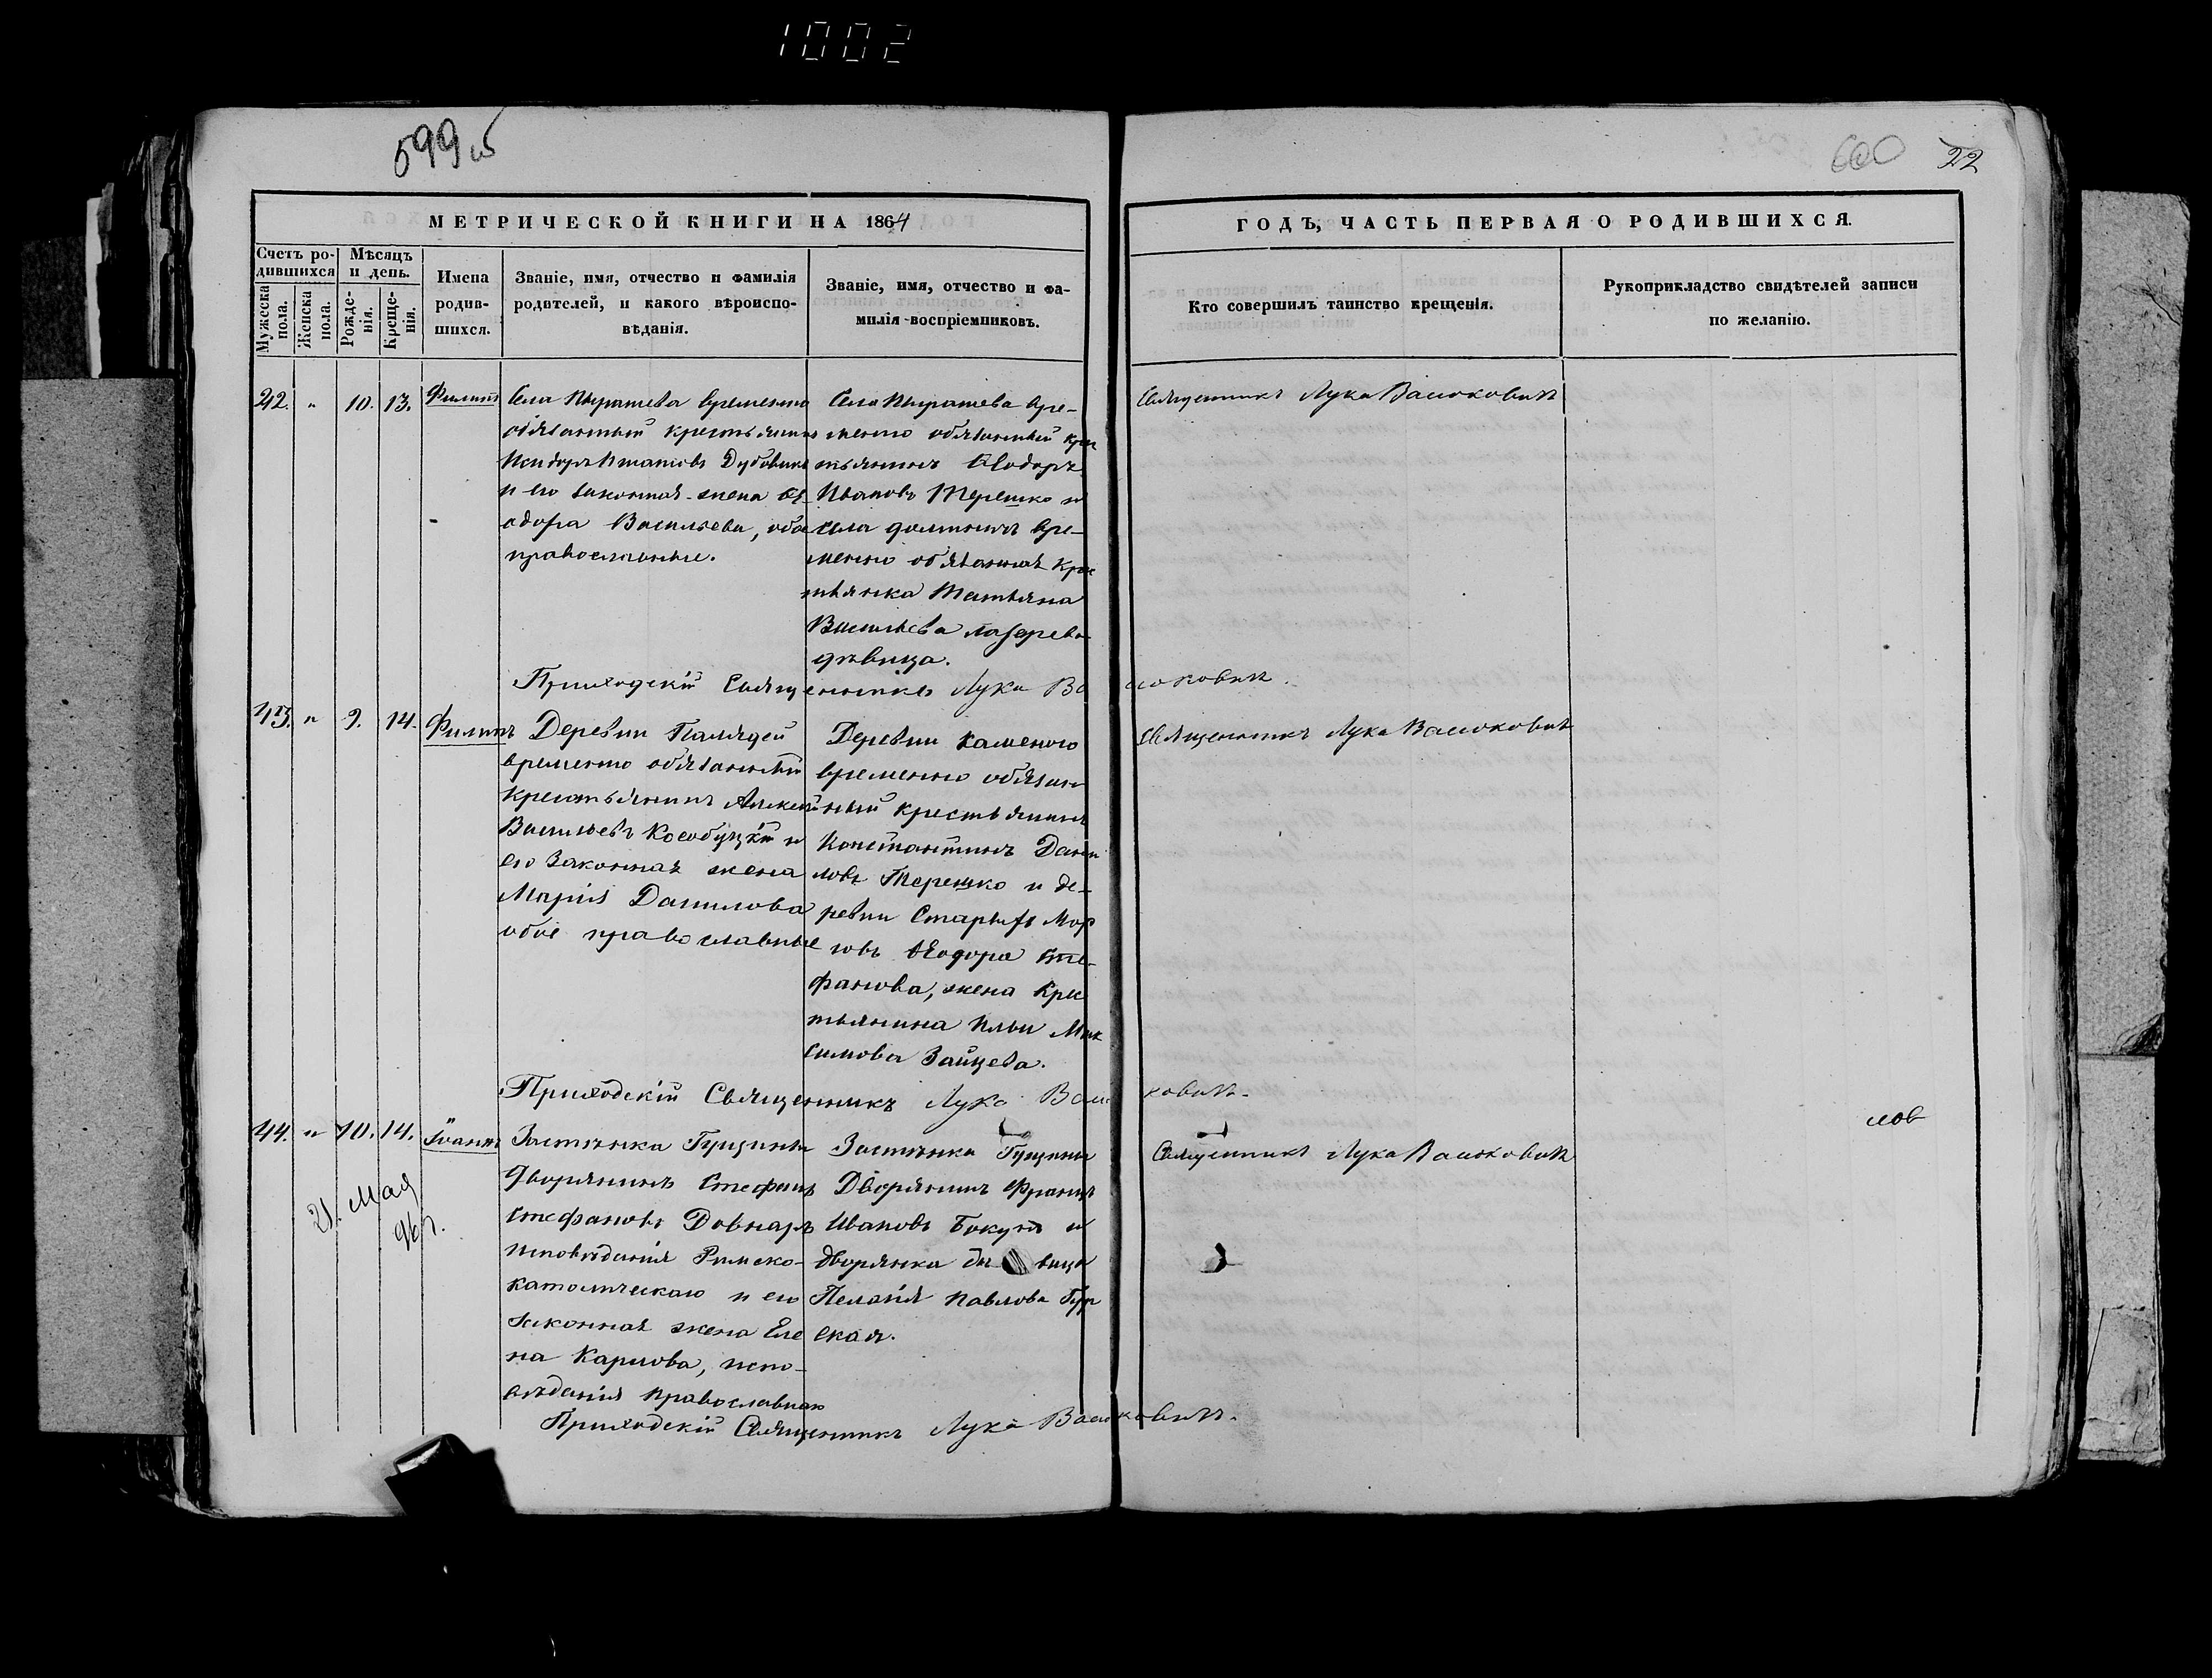 1002
599 об
600 22
МЕТРИЧЕСКОЙ КНИГИ НА 1864
ГОДЪ, ЧАСТЬ ПЕРВАЯ О РОДИВШИХСЯ.
Счетъ ро-
дившихся
Мужеска
пола.
Женска
пола.
Мѣсяцъ
и день.
Рожде-
нія.
Креще-
нія.
Имена
родив-
шихся.
Званіе, имя, отчество и фамилія
родителей, и какого вѣроиспо-
вѣданія.
Званіе, имя, отчество и фа-
милія воспріемниковъ.
Кто совершилъ таинство крещенія.
Рукоприкладство свидѣтелей записи
по желанію.
42. " 10. 13. Филипъ
Села Пырашева временно
обязанный крестьянинъ
Исидоръ Игнатовъ Дубовикъ
и его законная жена Ѳе-
одора Васильева, обое
православные.
Села Пырашева вре-
менно обязанный крес
тьянинъ Ѳеодоръ
Ивановъ Терешко и
села вре-
менно обязанная крес
тьянка Татьяна
Васильева
дѣвица.
Священникъ Лука Васюковичъ
Приходскій Священникъ Лука Васюковичъ.
43. " 9. 14. Филипъ
Деревни
временно обязанный
крестьянинъ Алексей
Васильевъ Кособуцкій и
его законная жена
Марія Данилова
обое православные
Деревни Каменого
временно обязан
ный крестьянинъ
Константинъ Дани
ловъ Терешко и де-
ревни Старыхъ
Ѳеодора Сте-
фанова, жена крес
тьянина Ильи Мак
симова Зайцева.
Священникъ Лука Васюковичъ
Приходскій Священникъ Лука Васюковичъ.
44. " 10. 14. Іоаннъ
21. Мая
96 г.
Застѣнка Гущины
дворянинъ Стефанъ
Стефановъ Довнаръ
исповѣданія Римско-
католическаго и его
законная жена Еле
на Карлова, испо-
вѣданія православнаго
Застѣнка Гущины
Дворянинъ Францъ
Ивановъ Бокунъ и
дворянка вица
Пелагія Павлова Гур
ская.
Священникъ Лука Васюковичъ
Приходскій Священникъ Лука Васюковичъ.